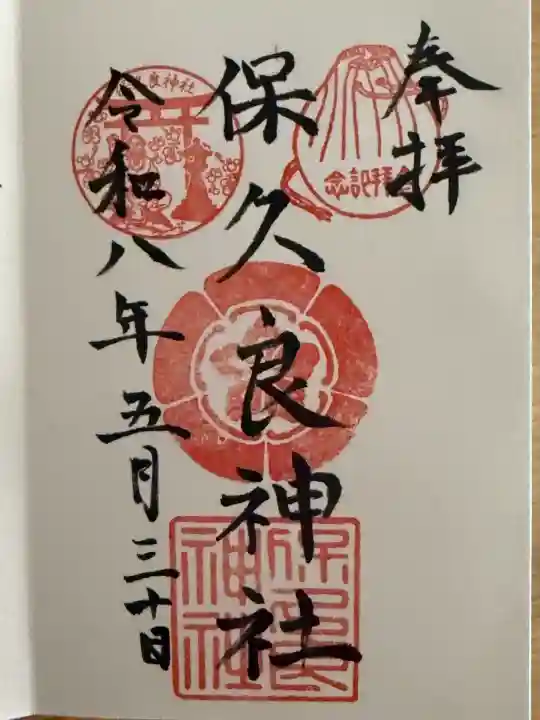 奉拝
参拝記念
保久良神社
保久良神社
良神社
令和八年五月三十日